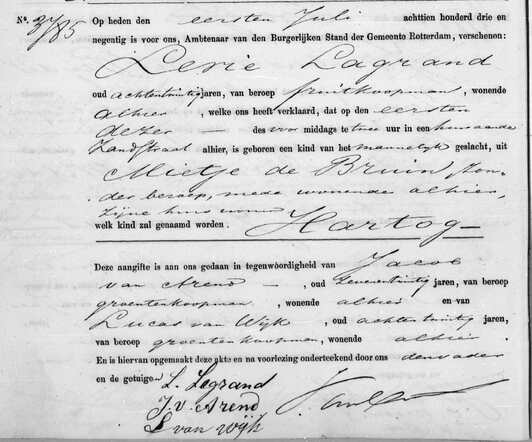 No. 3785 Op heden den eersten Juli achttien honderd drie en
negentig is voor ons, Ambtenaar van den Burgerlijken Stand der Gemeente Rotterdam, verschenen:
Levie Lagrand
oud achtentwintig jaren, van beroep fruitkoopman, wonende
alhier, welke ons heeft verklaard, dat op den eersten
dezer — des voor middags te twee uur in een huis aan de
Zandstraat alhier, is geboren een kind van het mannelijk geslacht, uit
Mietje de Bruin, zon-
der beroep, mede wonende alhier,
zijne huisvrouw
welk kind zal genaamd worden. Hartog —
Deze aangifte is aan ons gedaan in tegenwoordigheid van Jacob
van Arend —, oud zevenentwintig jaren, van beroep
groentenkoopman, wonende alhier en van
Lucas van Wijk, oud achtentwintig jaren,
van beroep groentenkoopman, wonende alhier.
En is hiervan opgemaakt deze akte en na voorlezing onderteekend door ons den vader
en de getuigen.
L. Legrand
J. v. Arend
L van Wijk